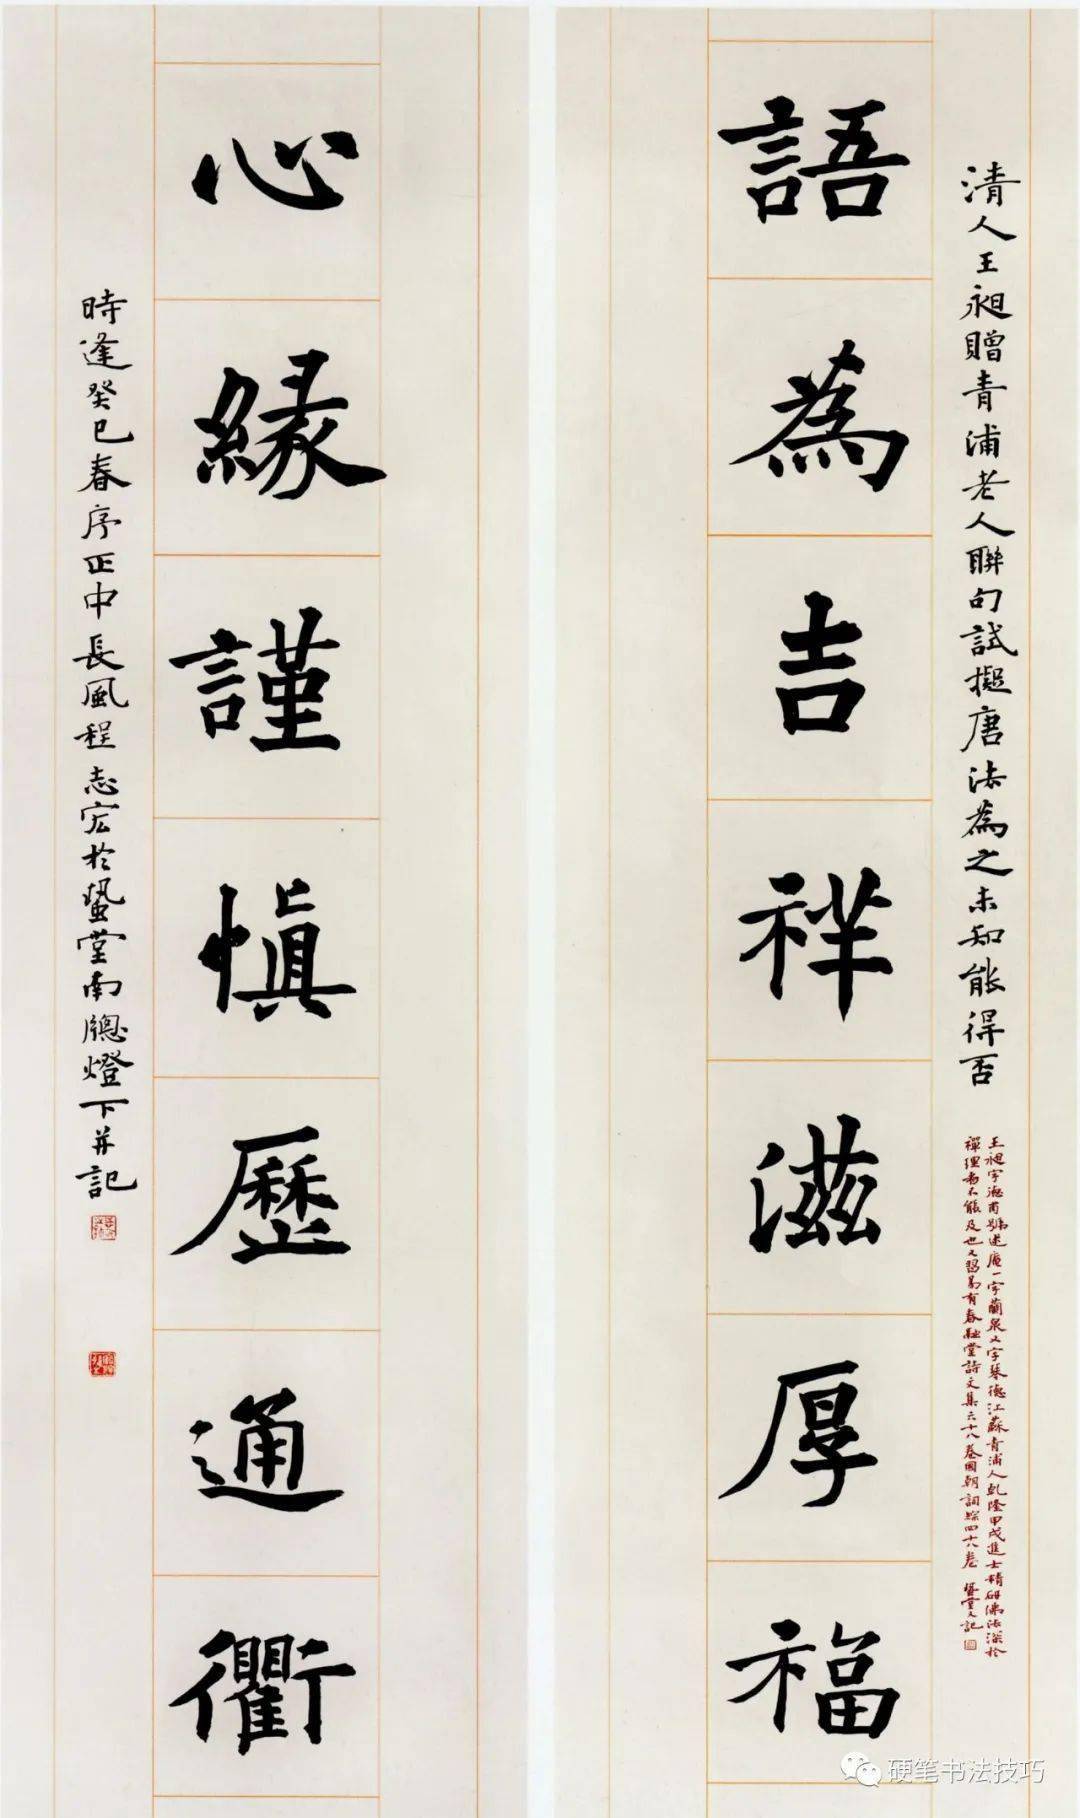 清人王昶贈青浦老人聯句試擬唐法為之未知能得否
語為吉祥滋厚福
王昶字德甫號述庵一字蘭泉又字琴德江蘇青浦人乾隆甲戌進士精研佛法深於
禪理者不能及也又習易有春融堂詩文集六十八卷國朝詞綜四十八卷 蟄堂又記
心緣謹慎歷通衢
時逢癸巳春序正中長風程志宏於蟄堂南牕燈下并記
硬笔书法技巧